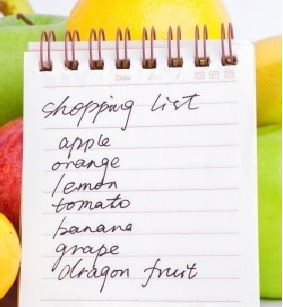 Date
shopping list
apple
orange
lemon
tomato
banana
grape
dragon fruit